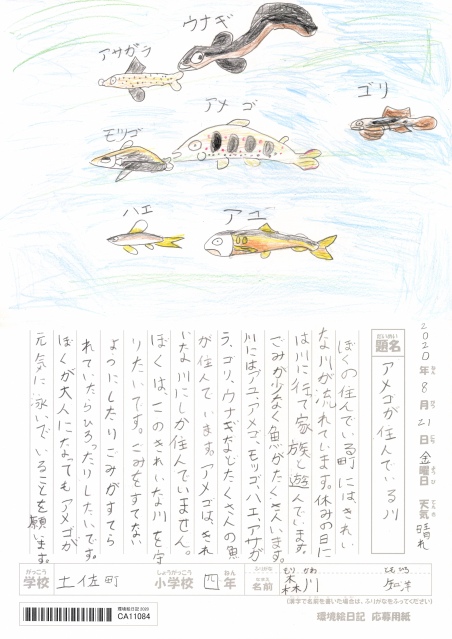 ウナギ
アサガラ
アメゴ
ゴリ
モツゴ
ハエ
アユ
2020年8月21日金曜日 天気 晴れ
ねん
がつ
にち
ようび
てんき
だいめい
題名
アメゴが住んでいる川
ぼくの住んでいる町には、きれい
な川が流れています。休みの日に
は川に行って家族と遊んでいます。
ごみが少なく魚がたくさんいます。
川にはアユ、アメゴ、モツゴ、ハエ、アサガ
ラ、ゴリ、ウナギなどたくさんの魚
が住んでいます。アメゴは、きれ
いな川にしか住んでいません。
ぼくはこのきれいな川を守
りたいです。ごみをすてない
ようにしたりごみがすてら
れていたらひろったりしたいです。
ぼくが大人になってもアメゴが
元気に泳いでいることを願います。
がっこう
学校
土佐町
しょうがっこう
小学校
四
ねん
年
ふりがな
なまえ
名前
もり かわ
森川
ともひろ
(漢字で名前を書いた場合は、ふりがなをふってください)
環境絵日記2020
CA11084
環境絵日記 応募用紙